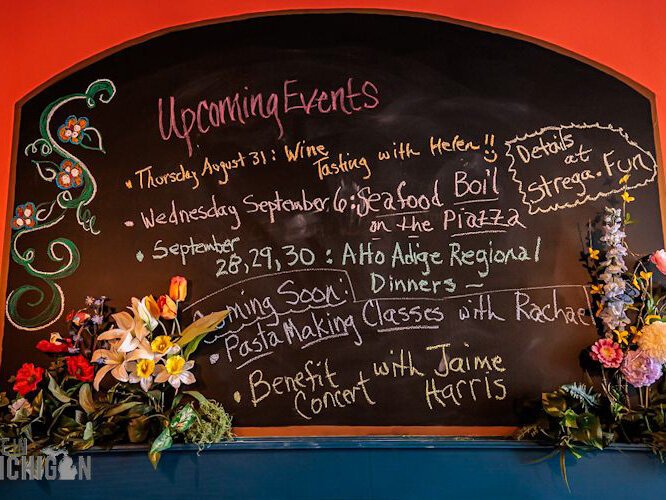 Upcoming Events
• Thursday August 31: Wine
Tasting with Helen!!
Details
at
Strega.Fun
• Wednesday September 6: Seafood Boil
on the Piazza
• September
28, 29, 30: Alto Adige Regional
Dinners ~
Coming Soon:
• Pasta Making Classes with Rachael
• Benefit
Concert with Jaime
Harris